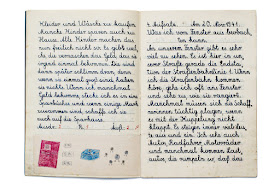 Kleider und Wäsche zu kaufen.
Manche Kinder sparen auch zu
Hause. Alle Kinder machen das
nun freilich nicht. Es gibt viele,
die vernaschen das Geld, das sie
irgend einmal bekommen. Die sind
dann später schlimm daran, denn
wenn sie einmal groß sind, haben
sie nichts. Wenn ich manchmal
Geld bekomme, steck ich es in eine
Sparbüchse und wenn einige Mark
zusammen sind, schaffe ich sie
auch auf die Sparkasse.
4. Aufsatz. Am 20. Nov. 1941.
Was ich vom Fenster aus beobach-
ten kann.
An unserem Fenster gibt es sehr
viel zu sehen. Es ist hier in un-
serer Straße gerade die Endsta-
tion der Straßenbahnlinie 1. Wenn
ich die Straßenbahn kommen
höre, gehe ich oft ans Fenster
und sehe zu, wie sie rangiert.
Manchmal müssen sich die Schaff-
nerinnen tüchtig plagen, wenn
es mit der Kupplung nicht
klappt. Es steigen immer viel Leu-
te aus und ein. Ich sehe auch
Autos, Radfahrer, Motorräder
und manchmal kommen Last-
autos, die rumpeln so, daß das